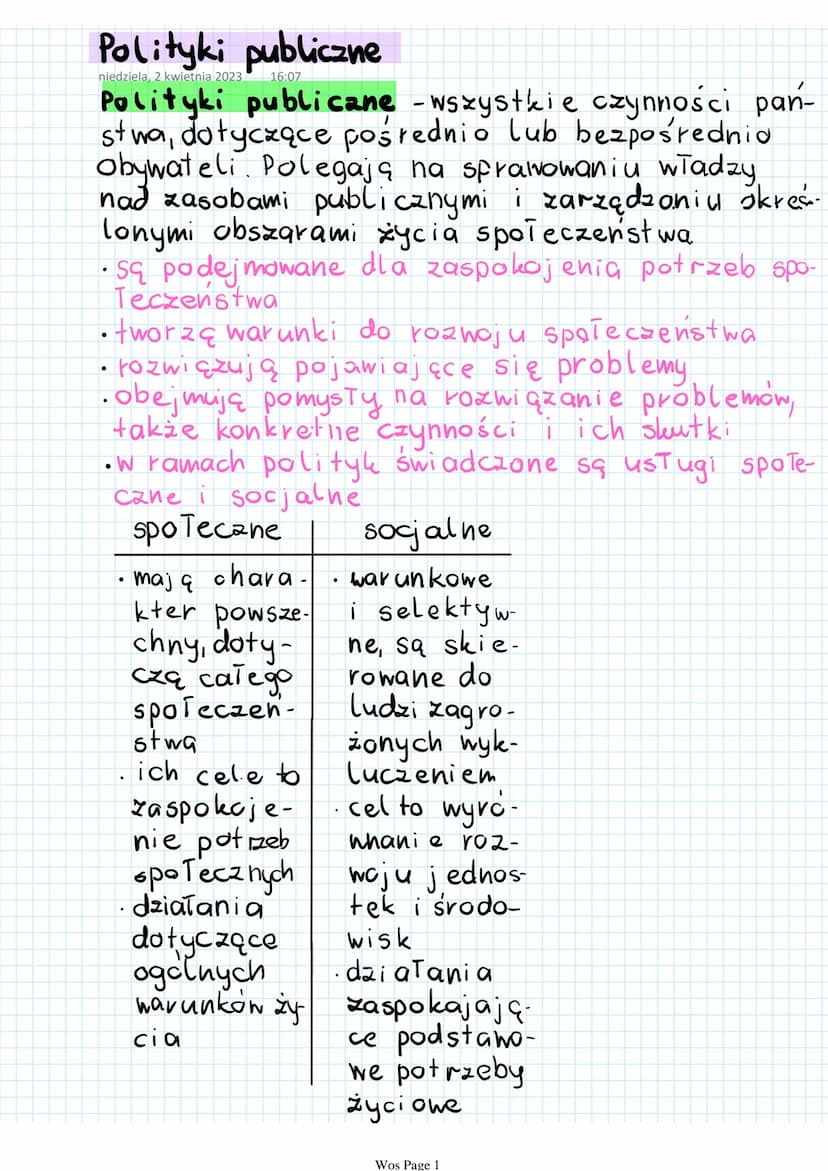 Polityki publiczne
niedziela, 2 kwietnia 2023 16:07
Polityki publiczne - wszystkie czynności pań-
stwa, dotyczące pośrednio lub bezpośrednio
obywateli. Polegają na sprawowaniu władzy
nad zasobami publicznymi i zarządzaniu okreś-
lonymi obszarami życia społeczeństwa
· są podejmowane dla zaspokojenia potrzeb spo-
łeczeństwa
· tworzą warunki do rozwoju społeczeństwa
· rozwiązują pojawiające się problemy
· obejmują pomysły na rozwiązanie problemów,
także konkretne czynności i ich skutki
· w ramach polityk świadczone są usługi społe-
czne i socjalne
społeczne
· mają chara-
kter powsze-
chny, doty-
czą całego
społeczeń-
stwa
· ich cele to
zaspokoje-
nie potrzeb
społecznych
· działania
dotyczące
ogólnych
warunków ży-
cia
socjalne
· warunkowe
i selektyw-
ne, są skie-
rowane do
ludzi zagro-
żonych wyk-
luczeniem
· cel to wyró-
wnanie roz-
woju jednos-
tek i środo-
wisk
· działania
zaspokajają-
ce podstawo-
we potrzeby
życiowe
Wos Page 1